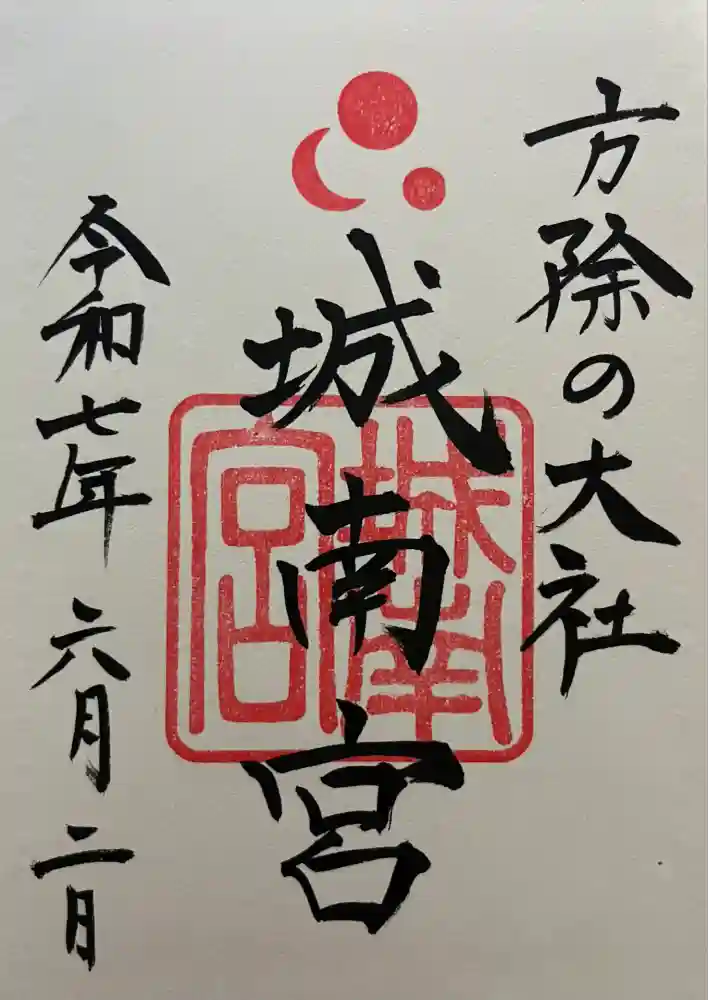 方除の大社
城南宮
城南宮
令和七年 六月 二日